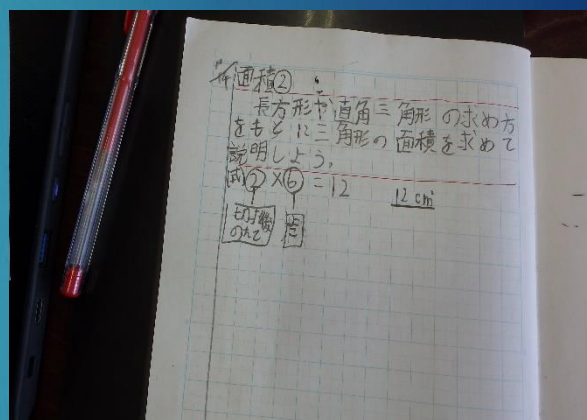 面積②
長方形や直角三角形の求め方
をもとに三角形の面積を求めて
説明しよう。
式 2×6=12 12cm²